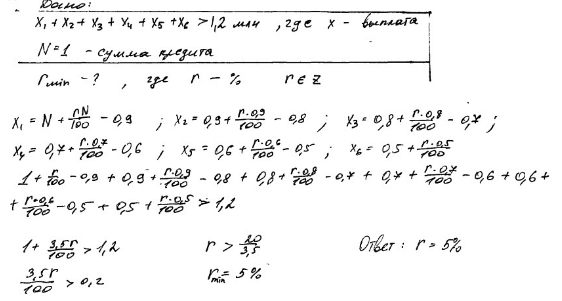 Дано:
x₁ + x₂ + x₃ + x₄ + x₅ + x₆ > 1,2 млн , где x - выплата
N = 1 - сумма кредита
rmin - ? , где r - % r ∈ Z
x₁ = N + rN/100 - 0,9 ; x₂ = 0,9 + r·0,9/100 - 0,8 ; x₃ = 0,8 + r·0,8/100 - 0,7 ;
x₄ = 0,7 + r·0,7/100 - 0,6 ; x₅ = 0,6 + r·0,6/100 - 0,5 ; x₆ = 0,5 + r·0,5/100
1 + r/100 - 0,9 + 0,9 + r·0,9/100 - 0,8 + 0,8 + r·0,8/100 - 0,7 + 0,7 + r·0,7/100 - 0,6 + 0,6 +
+ r·0,6/100 - 0,5 + 0,5 + r·0,5/100 > 1,2
1 + 3,5r/100 > 1,2 r > 20/3,5 Ответ : r = 5%
3,5r/100 > 0,2 rmin = 5%